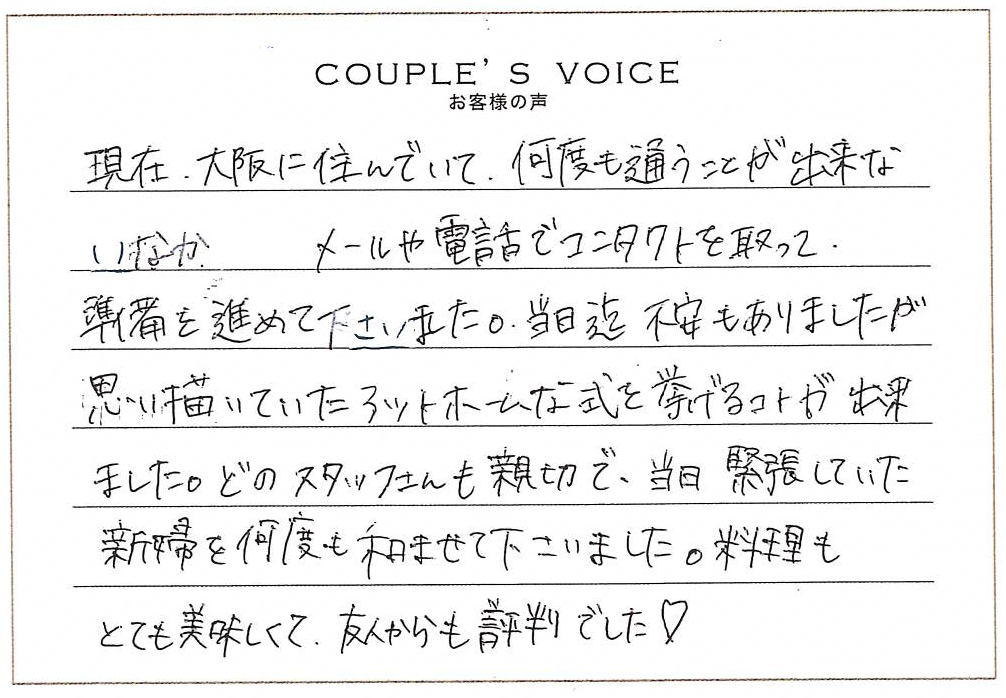 COUPLE'S VOICE
お客様の声
現在、大阪に住んでいて、何度も通うことが出来な
いなか メールや電話でコンタクトを取って、
準備を進めて下さいました。当日迄 不安もありましたが
思い描いていたアットホームな式を挙げるコトが出来
ました。どのスタッフさんも親切で、当日 緊張していた
新婦を何度も和ませて下さいました。料理も
とても美味しくて、友人からも評判でした♡